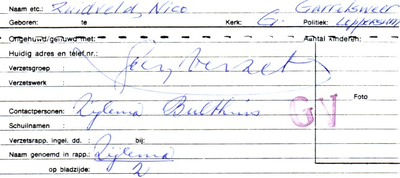 Naam etc.: Zuidveld, Nico Garrelsweer
Geboren: te Kerk: G. Politiek: Loppersum
Ongehuwd/gehuwd met: Aantal kinderen:
Huidig adres en telef.nr.:
Verzetsgroep Géén Verzet
Verzetswerk
Foto
Contactpersonen: Zijlema Bulthuis
GV
Schuilnaam :
Verzetsrapp. ingel. dd. : bij:
Naam genoemd in rapp.: Zijlema
op bladzijde: 2